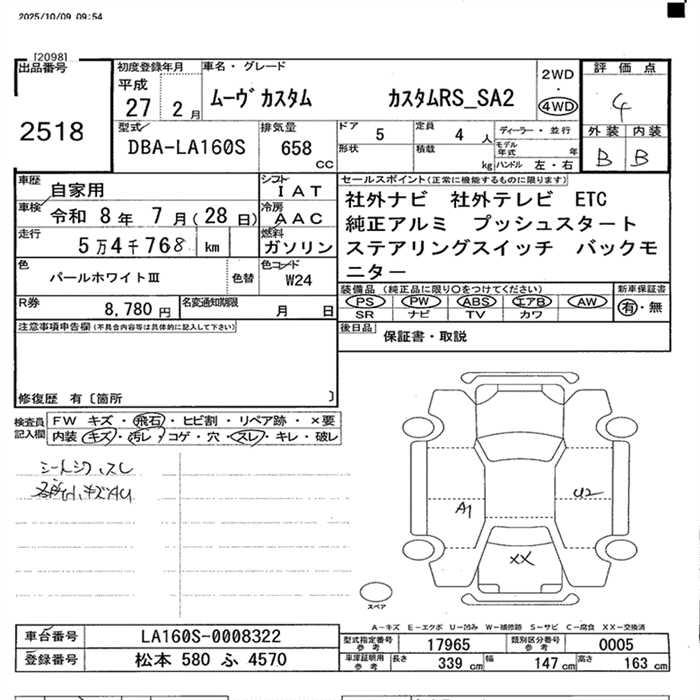 2025/10/09 09:54
[2098]
出品番号
2518
初度登録年月
平成
27 2月
車名・グレード
ムーヴカスタム カスタムRS_SA2
2WD
・
4WD
評価点
4
外装 内装
B B
型式
DBA-LA160S
排気量
658
CC
ドア
5
定員
4 人
形状
積載
kg
ディーラー・並行
モデル年式 年
ハンドル 左・右
車歴
自家用
シフト
IAT
車検
令和 8年 7月(28日)
冷房
AAC
走行
5万4千768 km
燃料
ガソリン
色
パールホワイトⅢ
色替
色コード
W24
R券
8,780円
名変通知期限
月 日
セールスポイント(正常に機能するものに限ります)
社外ナビ 社外テレビ ETC
純正アルミ プッシュスタート
ステアリングスイッチ バックモ
ニター
装備品(純正品に限り○をつけてください)
PS PW ABS エアB AW
SR ナビ TV カワ
新車保証書
有・無
後日品
保証書・取説
注意事項申告欄(不具合内容等は具体的に記入して下さい)
修復歴 有〔箇所 〕
検査員記入欄
FW キズ・飛石・ヒビ割・リペア跡・×要
内装 キズ・汚レ・コゲ・穴・スレ・キレ・破レ
シートシワ、スレ
A1
U2
XX
スペア
A−キズ E−エクボ U−凹み W−補修跡 S−サビ C−腐食 XX−交換済
車台番号 LA160S-0008322
登録番号 松本 580 ふ 4570
型式指定番号 参考 17965 類別区分番号 参考 0005
車庫証明用 参考 長さ 339 cm 幅 147 cm 高さ 163 cm